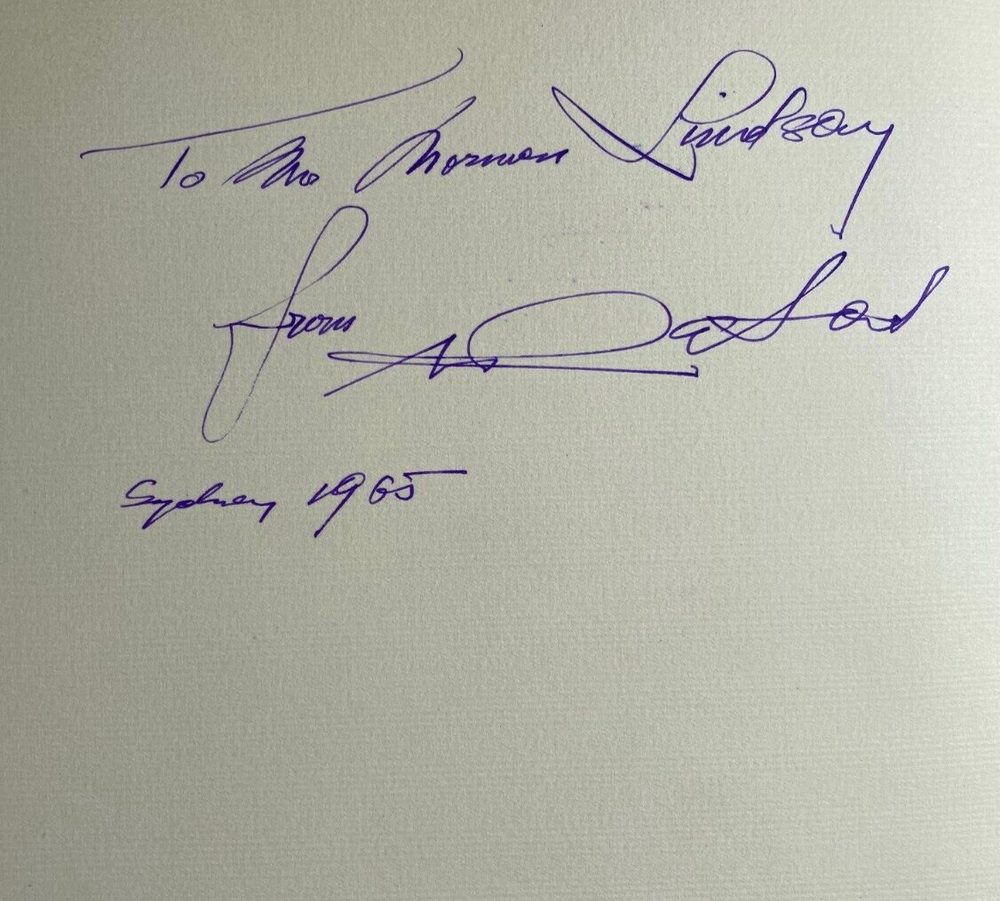 To Mr Norman Lindsay
from
Sydney 1965